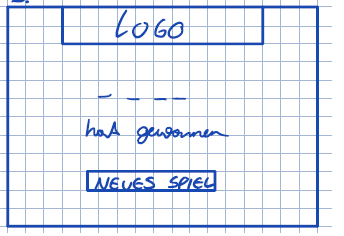 LOGO
_ _ _ _ _
hat gewonnen
NEUES SPIEL